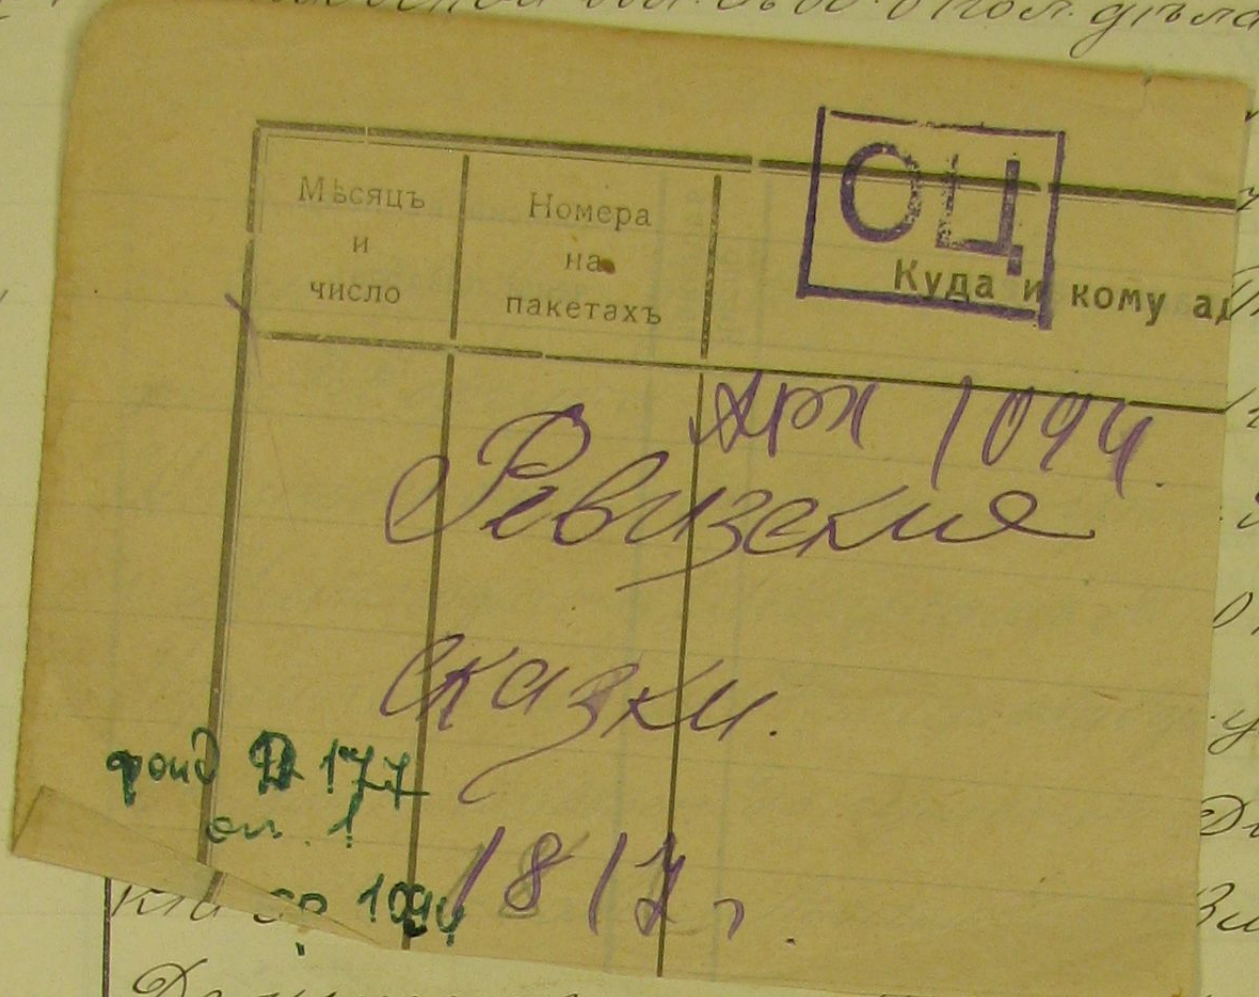 дѣла
ОЦ
Мѣсяцъ
и
число
Номера
на
пакетахъ
Куда и кому ад
Арх 1094.
Ревизские
сказки.
1817 г.
фонд Д 177
оп. 1
ер 1094